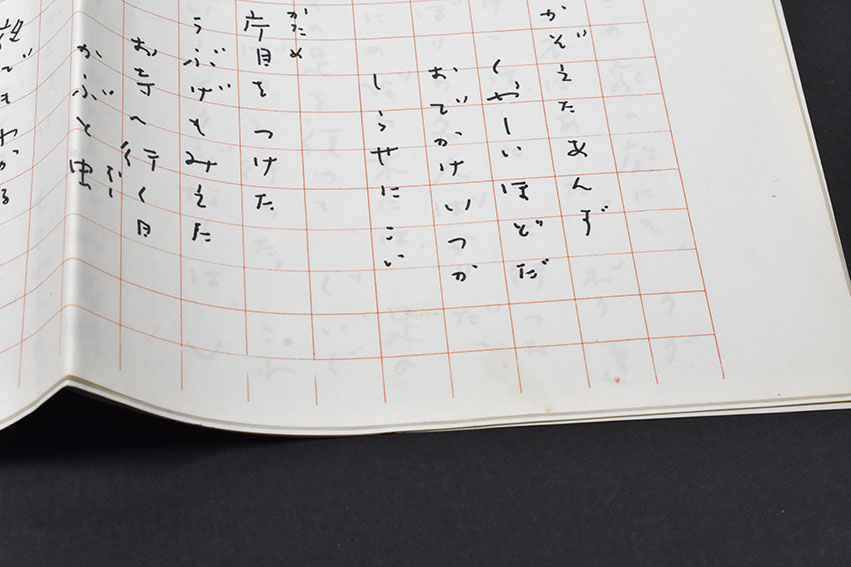 かぞえたあんず
くやしいほどだ
おでかけいつか
しらせにこい
かため
片目をつけた
うぶげもみえた
お寺へ行く日
かぶと虫
でもわかる